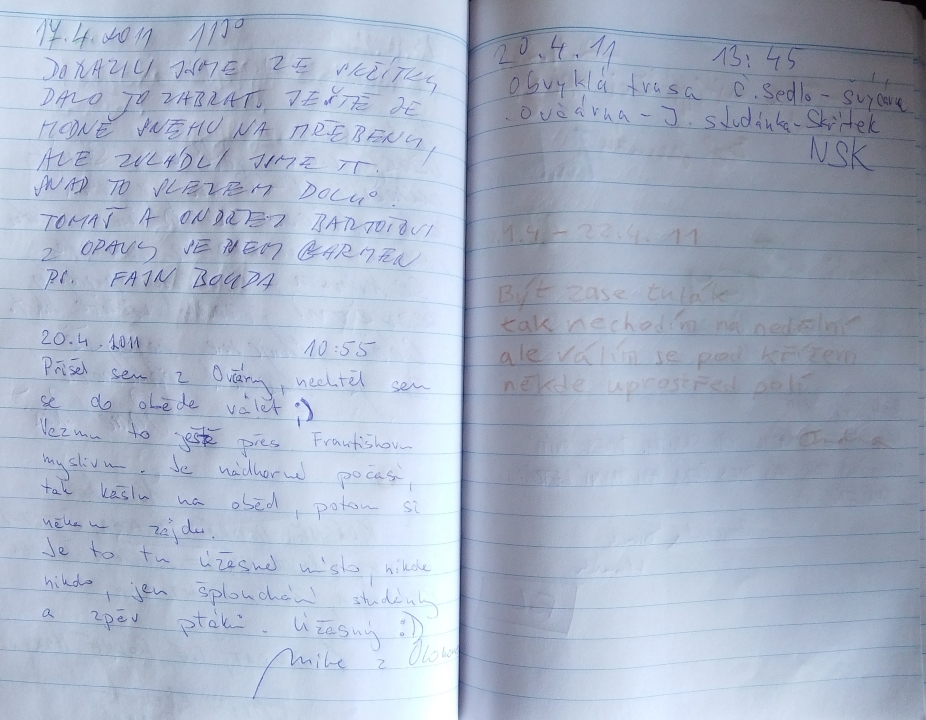 17.4.2011 11³⁰
DORAZILI JSME ZE SKŘÍTKU,
DALO TO ZABRAT. JEŠTĚ JE
HODNĚ SNĚHU NA HŘEBENU,
ALE ZVLÁDLI JSME TO.
SNAD TO SLEZEM DOLŮ.
TOMÁŠ A ONDŘEJ BARTOŠOVI
Z OPAVY SE PSEM
PS. FAJN BOUDA
20.4.2011 10:55
Přišel sem z Ovčárny, nechtěl sem
se do oběda válet ;)
Vezmu to ještě přes Františkovu
myslivnu. Je nádherné počasí,
tak kašlu na oběd, potom si
někam zajdu.
Je to tu úžasné místo, nikde
nikdo, jen šplouchání studánky
a zpěv ptáků. Úžasný :)
Mike z
20.4.11 13:45
Obvyklá trasa Č. Sedlo - Švýcárna
- Ovčárna - J. studánka - Skřítek
NSK
1.4 - 22.4. 11
Být zase tulák
tak nechodím na nedělní
ale válím se pod křížem
někde uprostřed polí